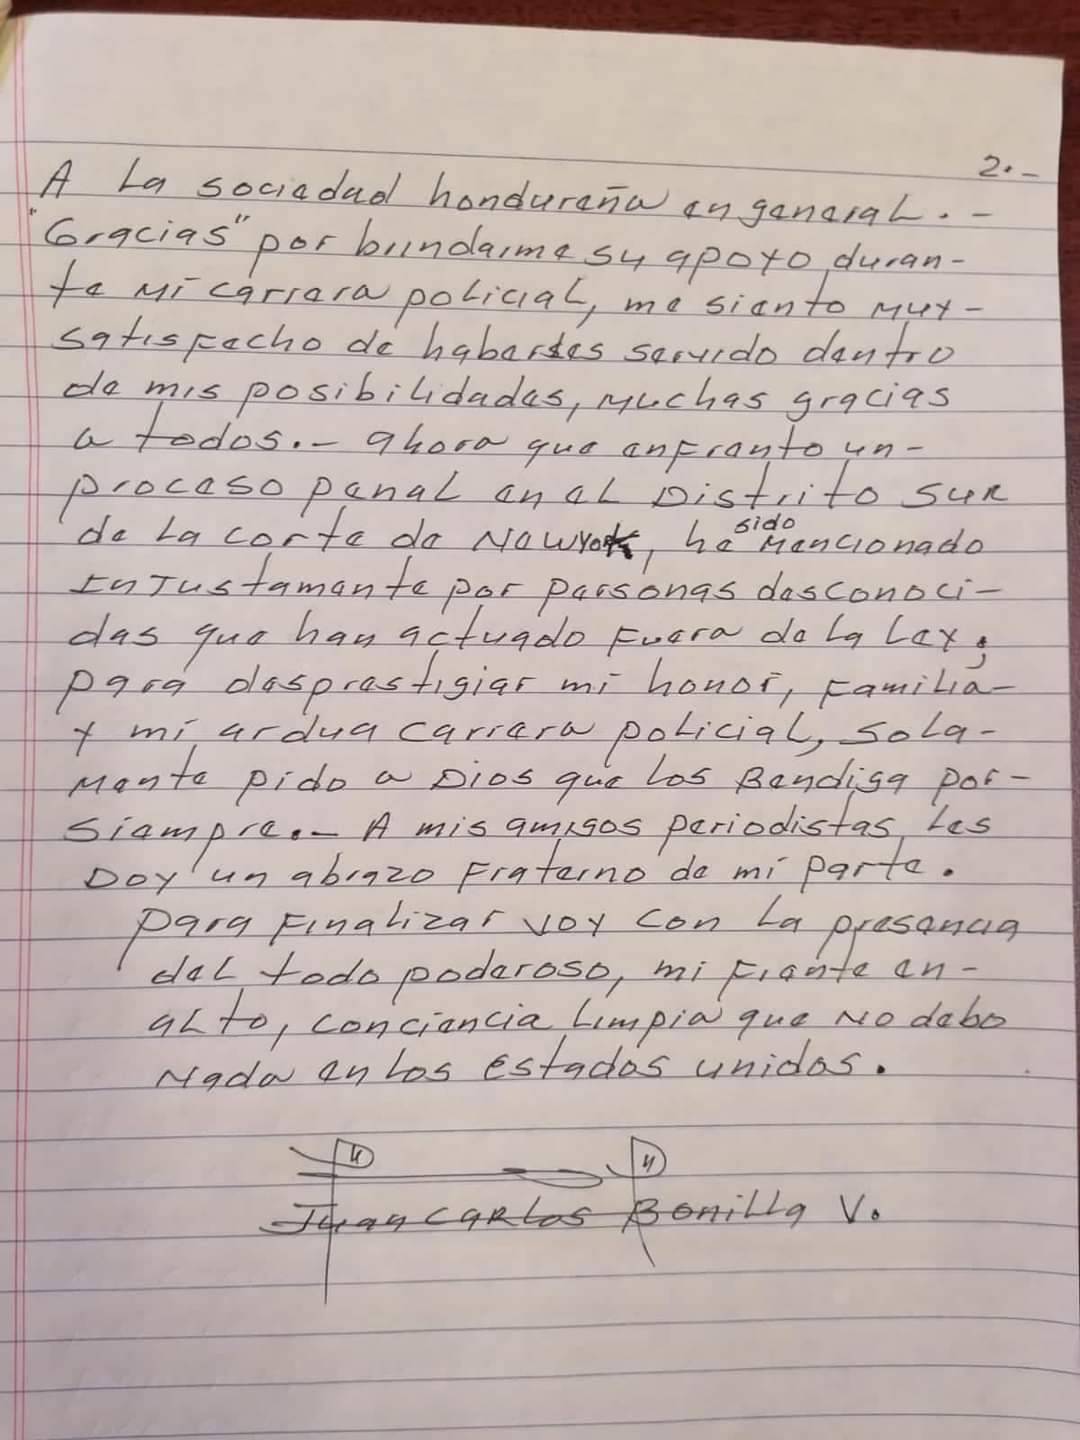 2.-
A La sociedad hondureña en general. -
"Gracias" por brindarme su apoyo duran-
te mi carrera policial, me siento muy-
satisfecho de haberles servido dentro
de mis posibilidades, muchas gracias
a todos.- ahora que enfrento un-
proceso penal en el Distrito Sur
de La corte de New York, he sido mencionado
Injustamente por personas desconoci-
das que han actuado fuera de la Ley;
para desprestigiar mi honor, familia-
y mi ardua carrera policial, sola-
mente pido a Dios que los Bendiga por-
siempre.- A mis amigos periodistas, Les
Doy un abrazo Fraterno de mi parte.
para Finalizar voy con La presencia
del todo poderoso, mi Frente en-
alto, conciencia Limpia que no debo
nada en Los Estados unidos.
Juan Carlos Bonilla V.